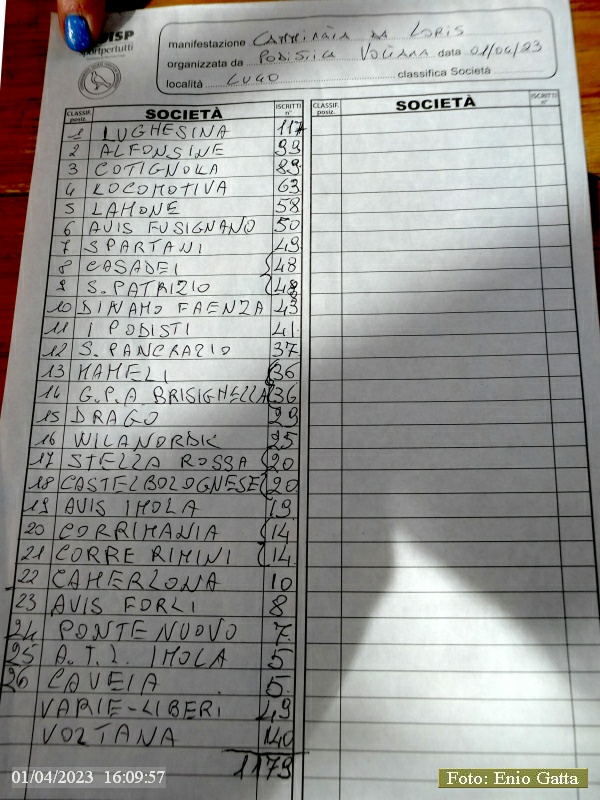 UISP
sportpertutti
manifestazione CAMMINATA DA LORIS
organizzata da PODISTICA VOLTANA data 01/04/23
località LUGO classifica Società
CLASSIF. posiz. SOCIETÀ ISCRITTI n° CLASSIF. posiz. SOCIETÀ ISCRITTI n°
1 LUGHESINA 117
2 ALFONSINE 99
3 COTIGNOLA 89
4 LOCOMOTIVA 63
5 LAMONE 58
6 AVIS FUSIGNANO 50
7 SPARTANI 49
8 CASADEI 48
9 S. PATRIZIO 48
10 DINAMO FAENZA 43
11 I PODISTI 41
12 S. PANCRAZIO 37
13 MAMELI 36
14 G.P.A BRISIGHELLA 36
15 DRAGO 29
16 WILANORDIK 25
17 STELLA ROSSA 20
18 CASTELBOLOGNESE 20
19 AVIS IMOLA 19
20 CORRIMANIA 14
21 CORRE RIMINI 14
22 CAMERLONA 10
23 AVIS FORLI 8
24 PONTE NUOVO 7
25 A.T.L. IMOLA 5
26 CAVEIA 5
VARIE-LIBERI 49
VOLTANA 140
1179
01/04/2023 16:09:57
Foto: Enio Gatta